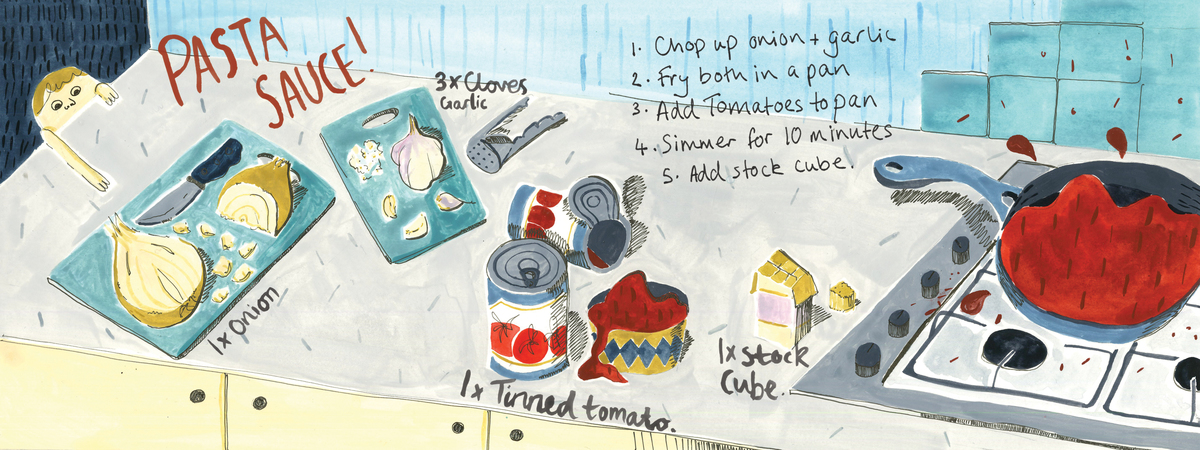 PASTA
SAUCE!
3x Cloves
Garlic
1. Chop up onion + garlic
2. Fry both in a pan
3. Add Tomatoes to pan
4. Simmer for 10 minutes
5. Add stock cube.
1x onion
1x Tinned tomato.
1x stock
Cube.